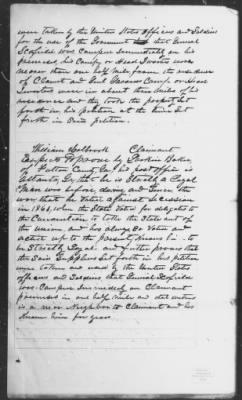 were taken by the United States Officers and Soldiers
for the use of the Government that General
Scofield was Camped Immediately on his
premises his Camp or Head Quarters was
than one half mile from the residence
of Claimant and Head
Quarters were in about three miles of his
residence and they took the property Set
forth in his petition at the time Set
forth in Said petition.
William Holbrook Claimant
Expects to prove by
of Fulton County Ga his post office is
Atlanta Ga that he is Strictly a Loyal
Man was before, during and Since the
war that he Voted against Secession
in 1861 when the State Voted for delegates to
the Convention to take the State out of
the Union and has always So Voted and
acted up to the present, knows him to
be Strictly Loyal and further proves that
the Said Supplies Set forth in his petition
were taken and used by the United States
officers and Soldiers that General Scofield
was Camped Immediately on Claimants
premises in one half mile and that witness
is a near Neighbor to Claimant and has
known him for years